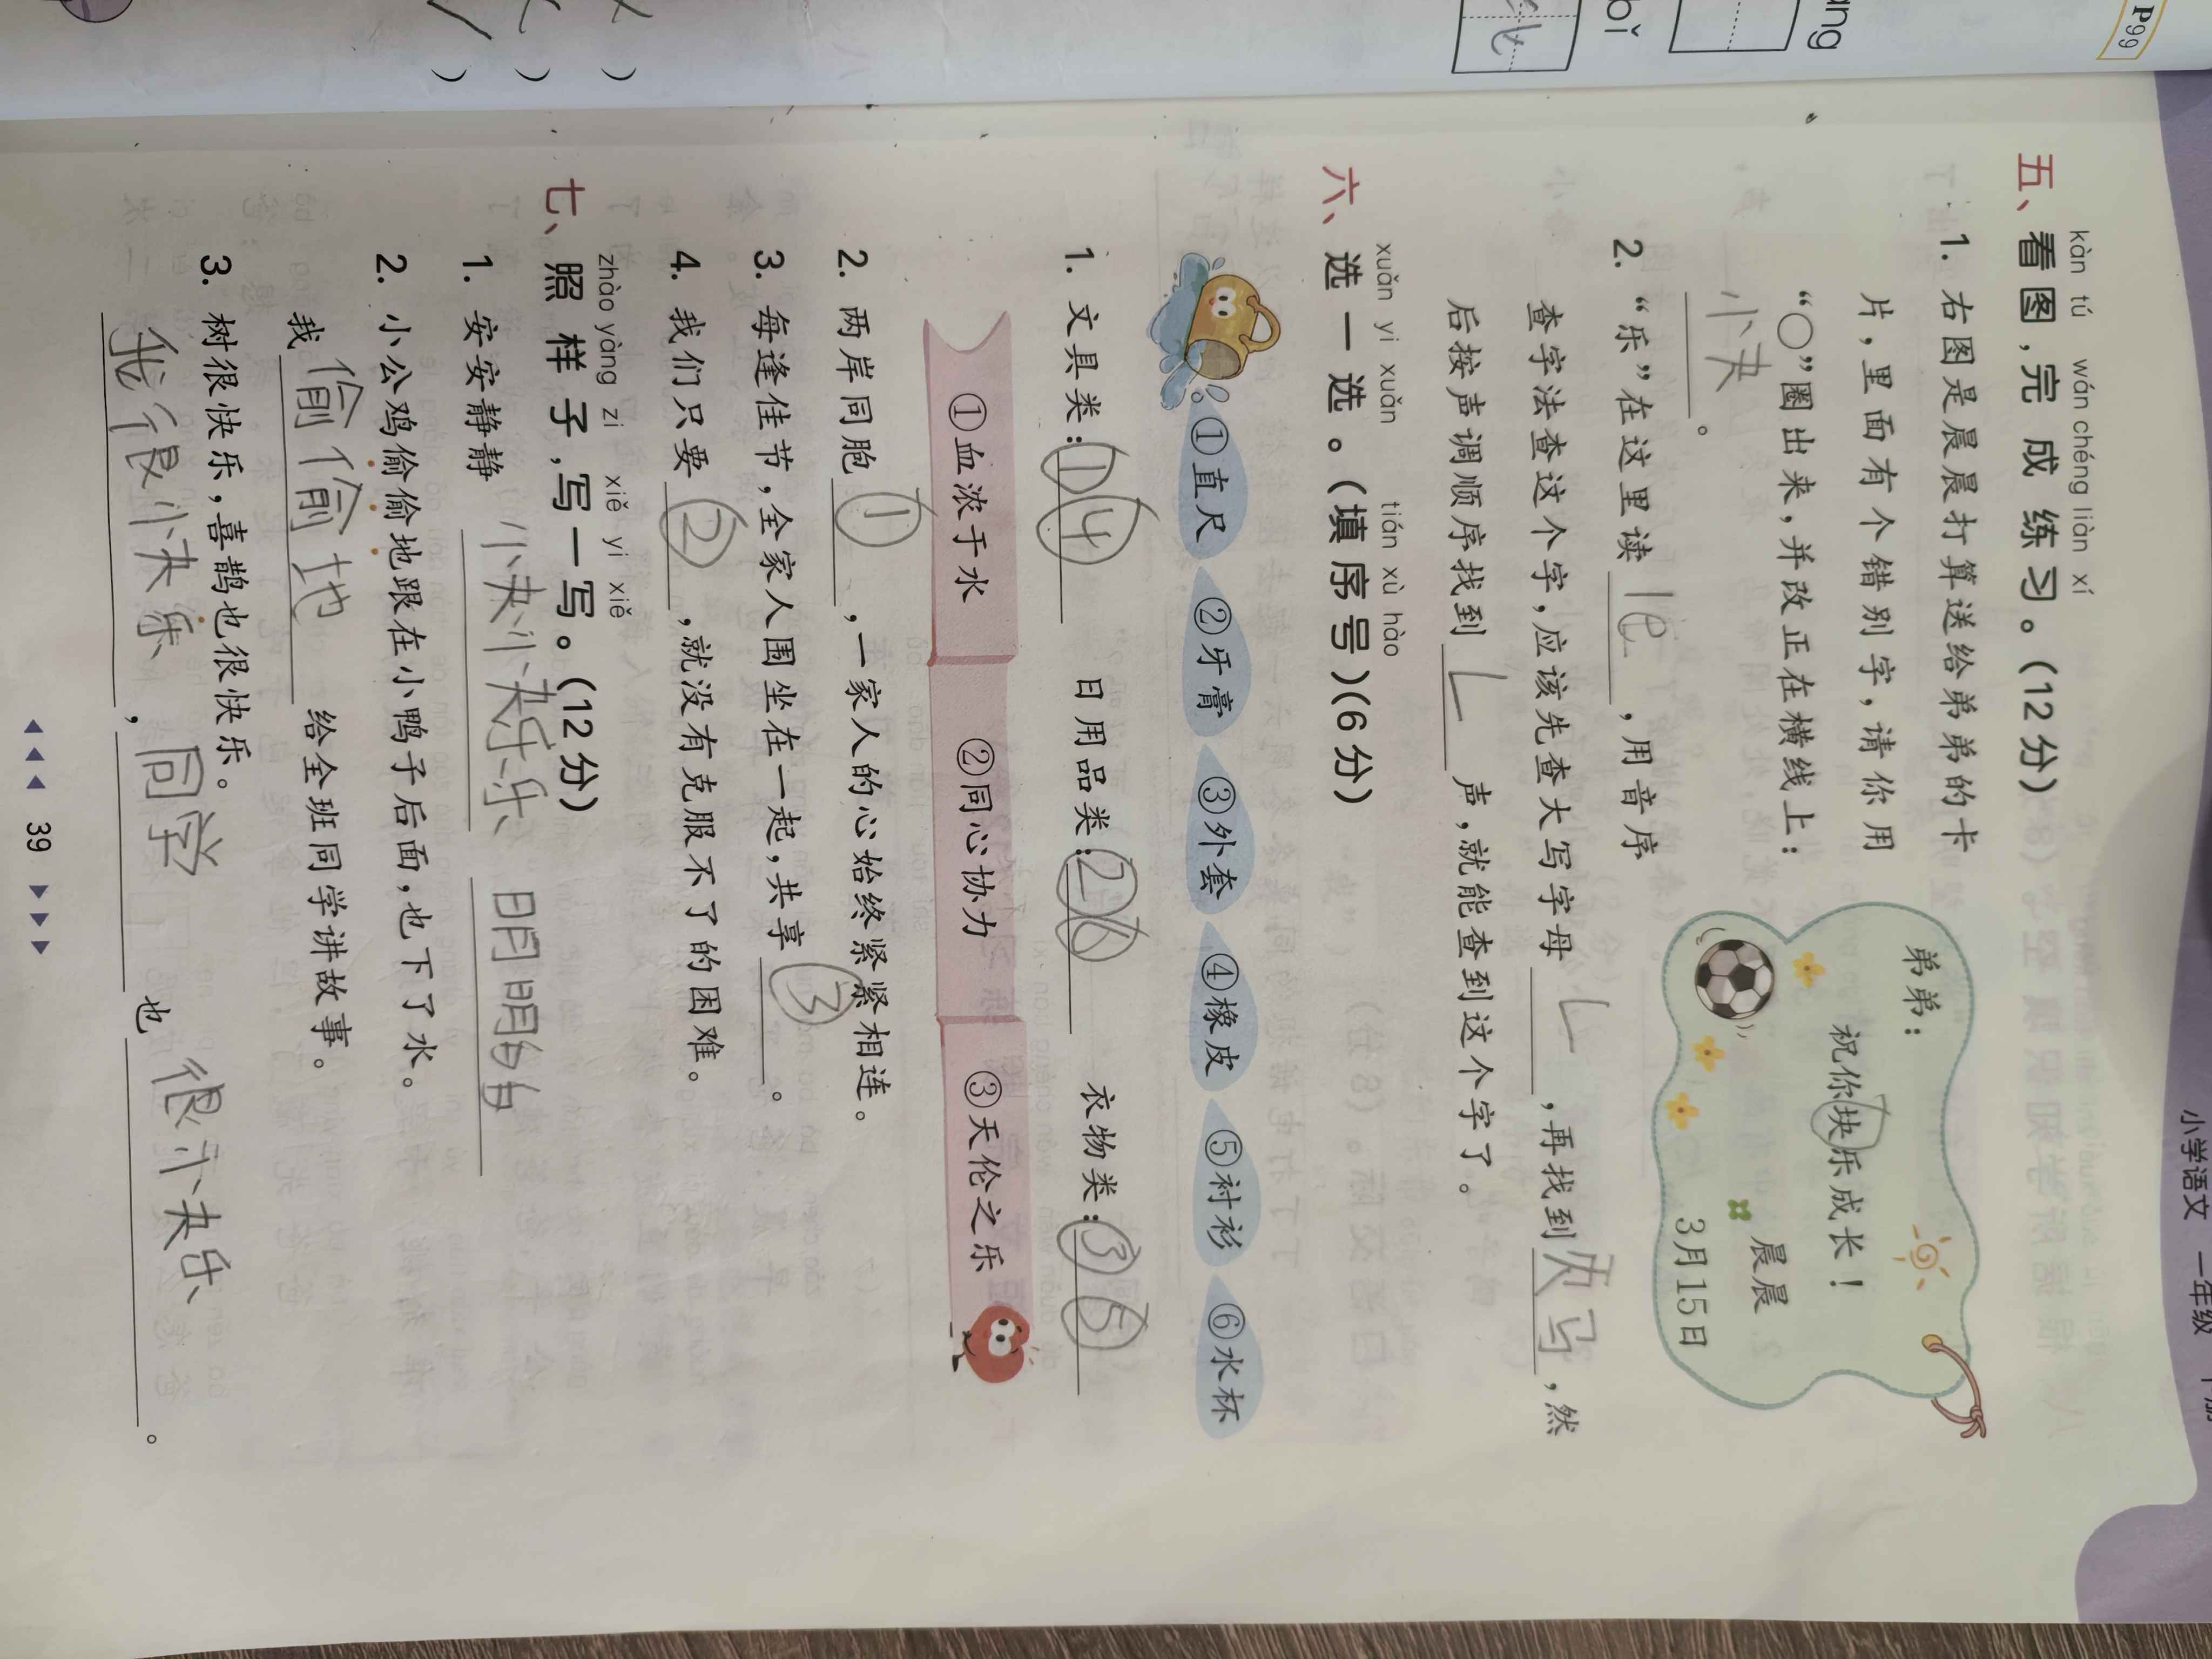 P99
ang
bǐ
)
)
)
小学语文 一年级 下册
kàn tú wán chéng liàn xí
五、看图,完成练习。(12分)
1. 右图是晨晨打算送给弟弟的卡
片,里面有个错别字,请你用
“○”圈出来,并改正在横线上:
快。
弟弟:
祝你块乐成长!
晨晨
3月15日
2. “乐”在这里读 le ,用音序
查字法查这个字,应该先查大写字母 L ,再找到 ,然
后按声调顺序找到 L 声,就能查到这个字了。
xuǎn yi xuǎn tián xù hào
六、选一选。(填序号)(6分)
①直尺 ②牙膏 ③外套 ④橡皮 ⑤衬衫 ⑥水杯
1. 文具类:①④ 日用品类:②⑥ 衣物类:③⑤
①血浓于水 ②同心协力 ③天伦之乐
2. 两岸同胞 ① ,一家人的心始终紧紧相连。
3. 每逢佳节,全家人围坐在一起,共享 ③ 。
4. 我们只要 ② ,就没有克服不了的困难。
zhào yàng zi xiě yi xiě
七、照样子,写一写。(12分)
1. 安安静静 快快乐乐 明明白白
2. 小公鸡偷偷地跟在小鸭子后面,也下了水。
我 偷偷地 给全班同学讲故事。
3. 树很快乐,喜鹊也很快乐。
我很快乐 , 同学 也 很快乐 。
39